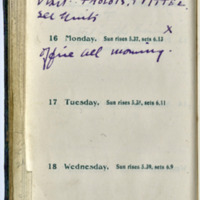 see Units
16 Monday. Sun rises 5.37, sets 6.13
x
office all morning.
17 Tuesday. Sun rises 5.38, sets 6.11
18 Wednesday. Sun rises 5.39, sets 6.9